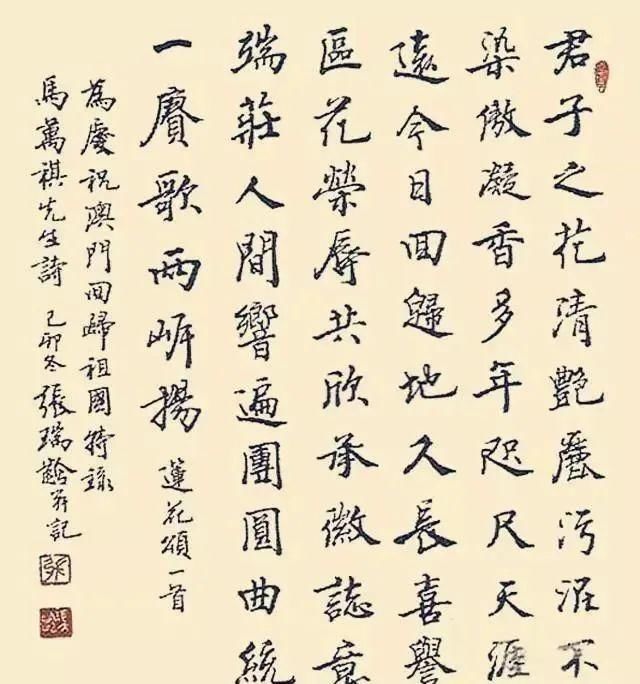 君子之花清艷麗污泥不
染傲凝香多年咫尺天涯
遠今日回歸地久長喜譽
區花榮辱共欣承徽誌意
端莊人間響遍團圓曲統
一賡歌兩岸揚 蓮花頌一首
為慶祝澳門回歸祖國特錄
馬萬祺先生詩 己卯冬張瑞齡并記